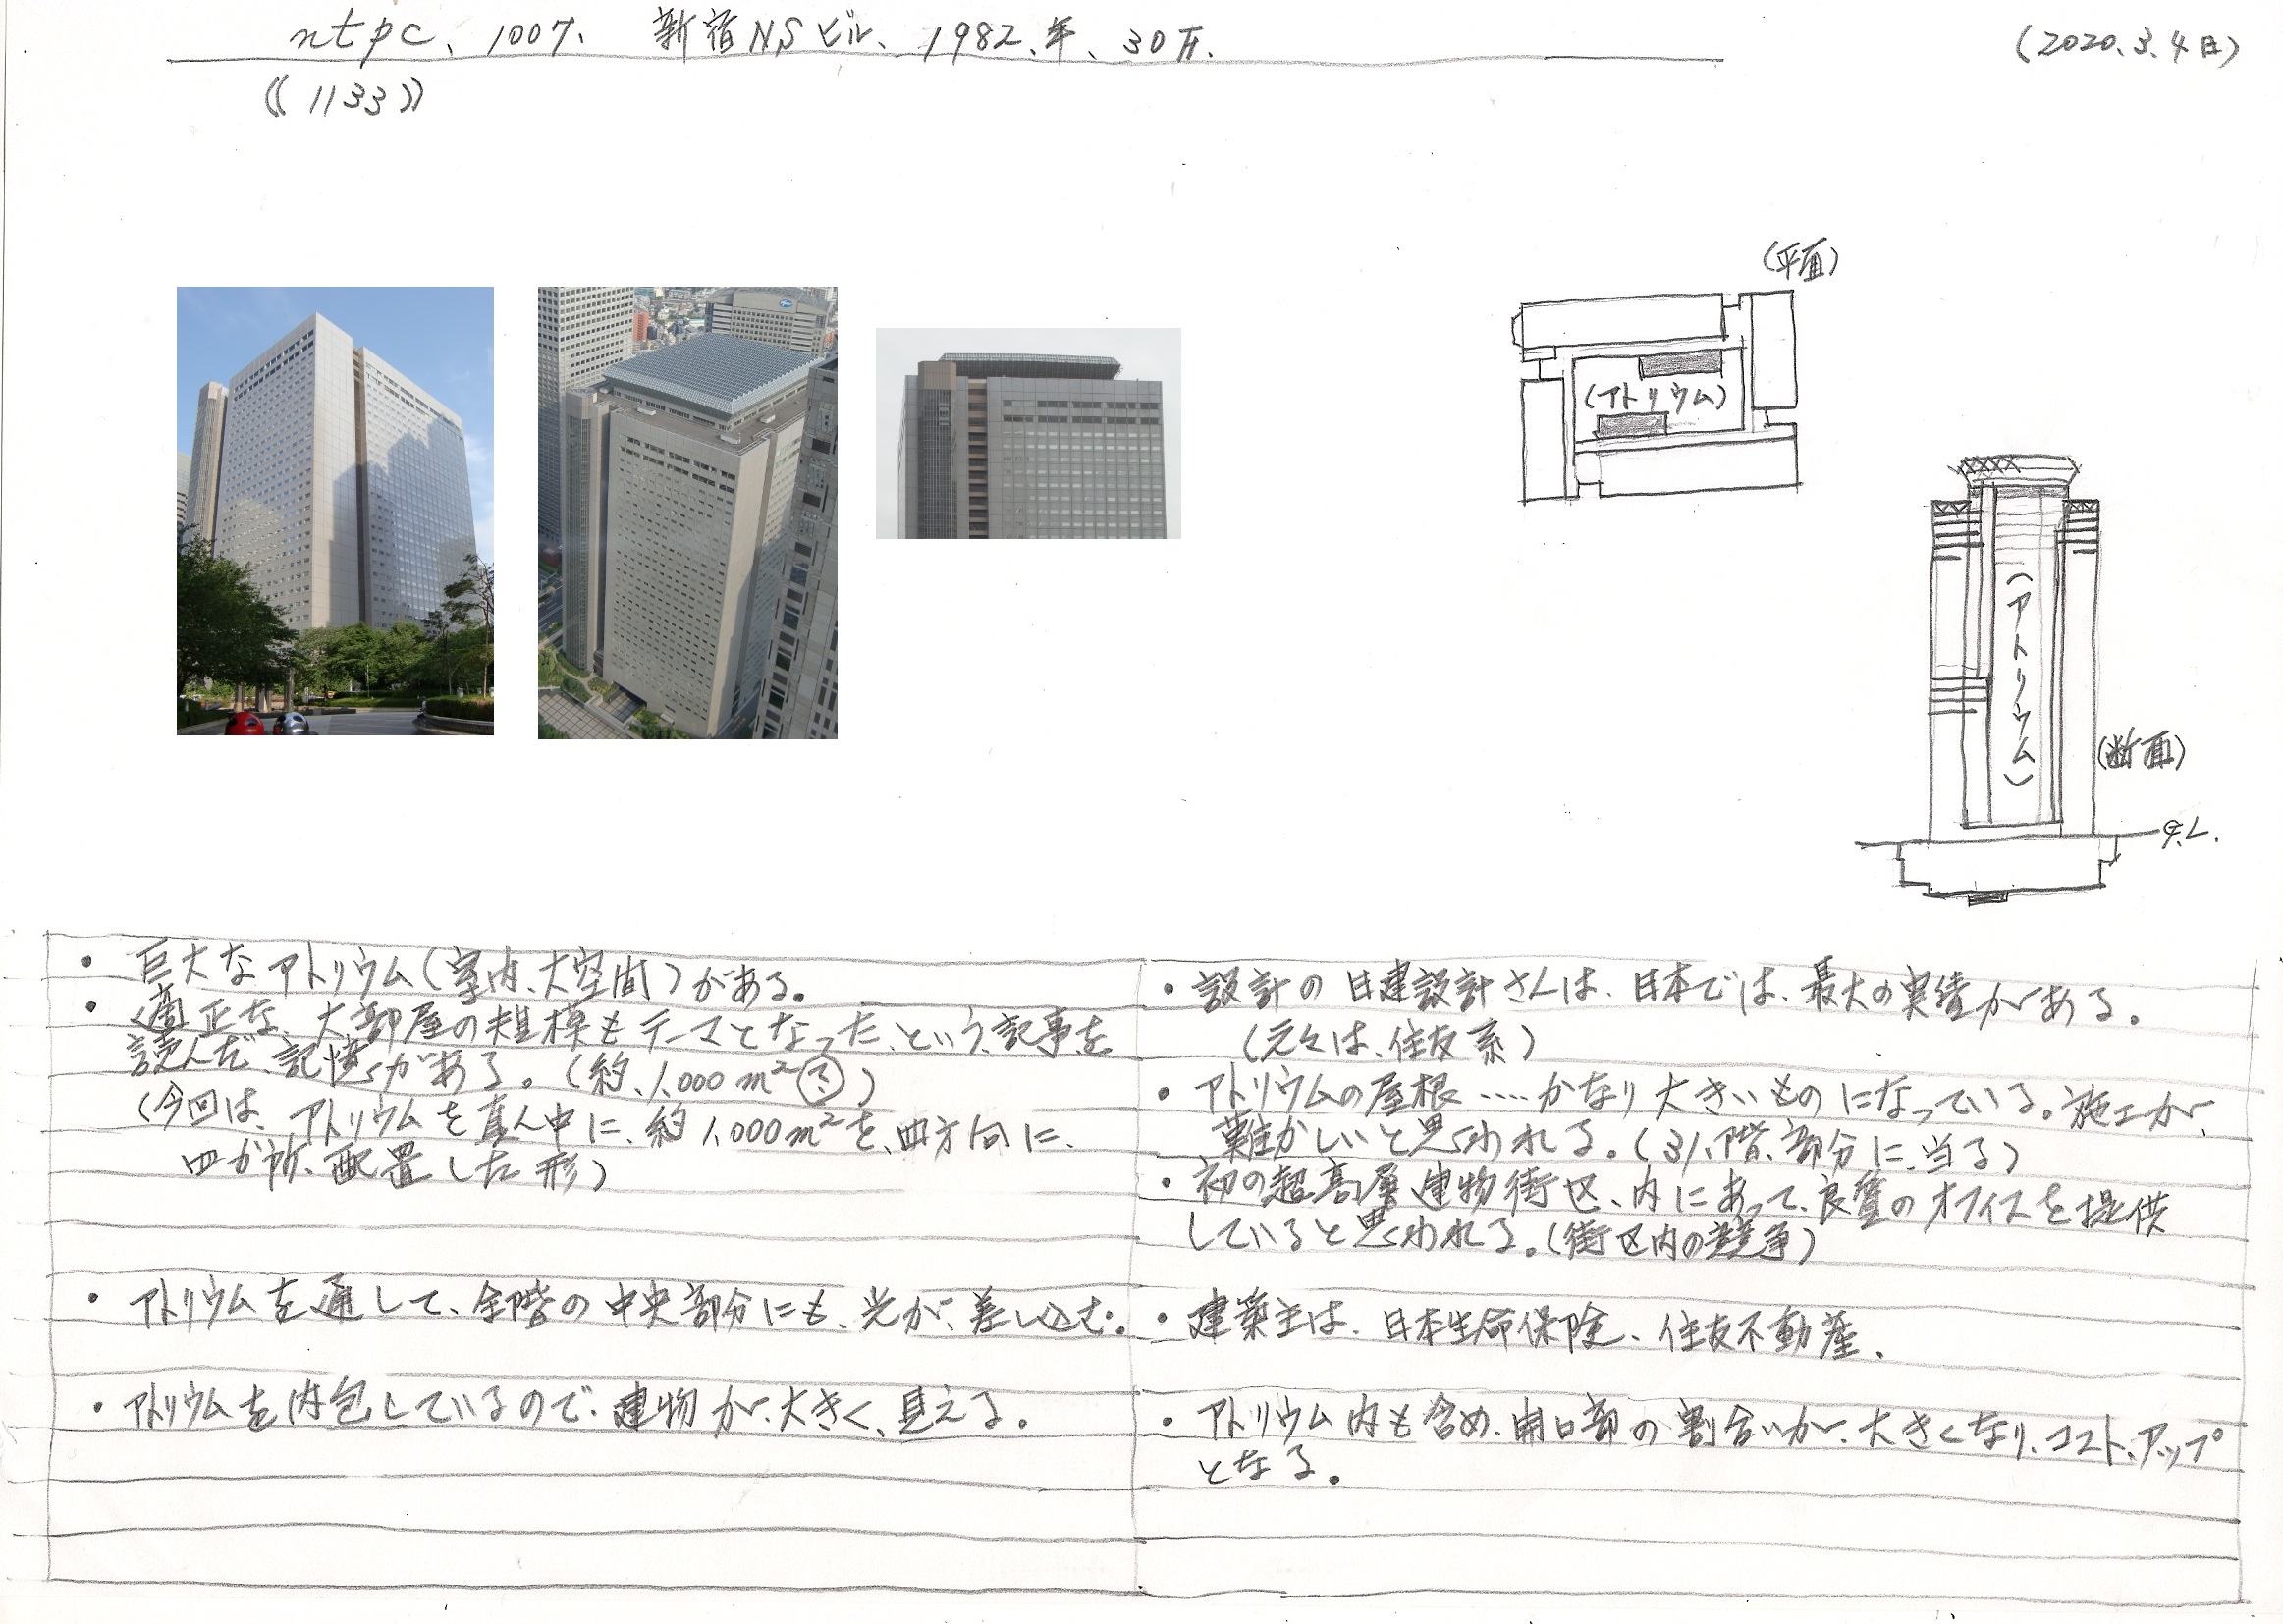 ntpc、1007、 新宿NSビル、1982、年、30万.
(2020.3.4日)
《1133》
(平面)
(アトリウム)
(アトリウム)
(断面)
G.L.
・巨大なアトリウム(室内、大空間)がある。
・適正な、大部屋の規模もテーマとなった、という、記事を
読んだ、記憶がある。(約、1,000m²
(今回は、アトリウムを真ん中に、約1,000m²を、四方向に、
四か所、配置した形)
・アトリウムを通して、全階の中央部分にも、光が、差し込む。
・アトリウムを内包しているので、建物が、大きく、見える。
・設計の日建設計さんは、日本では、最大の実績がある。
(元々は、住友系)
・アトリウムの屋根‥‥かなり大きいものになっている。施工が、
難かしいと思われる。(31、階、部分に、当る)
・初の超高層建物街区、内にあって、良質のオフィスを提供
していると思われる。(街区内の競争)
・建築主は、日本生命保険、住友不動産、
・アトリウム内も含め、開口部の割合いが、大きくなり、コスト、アップ
となる。